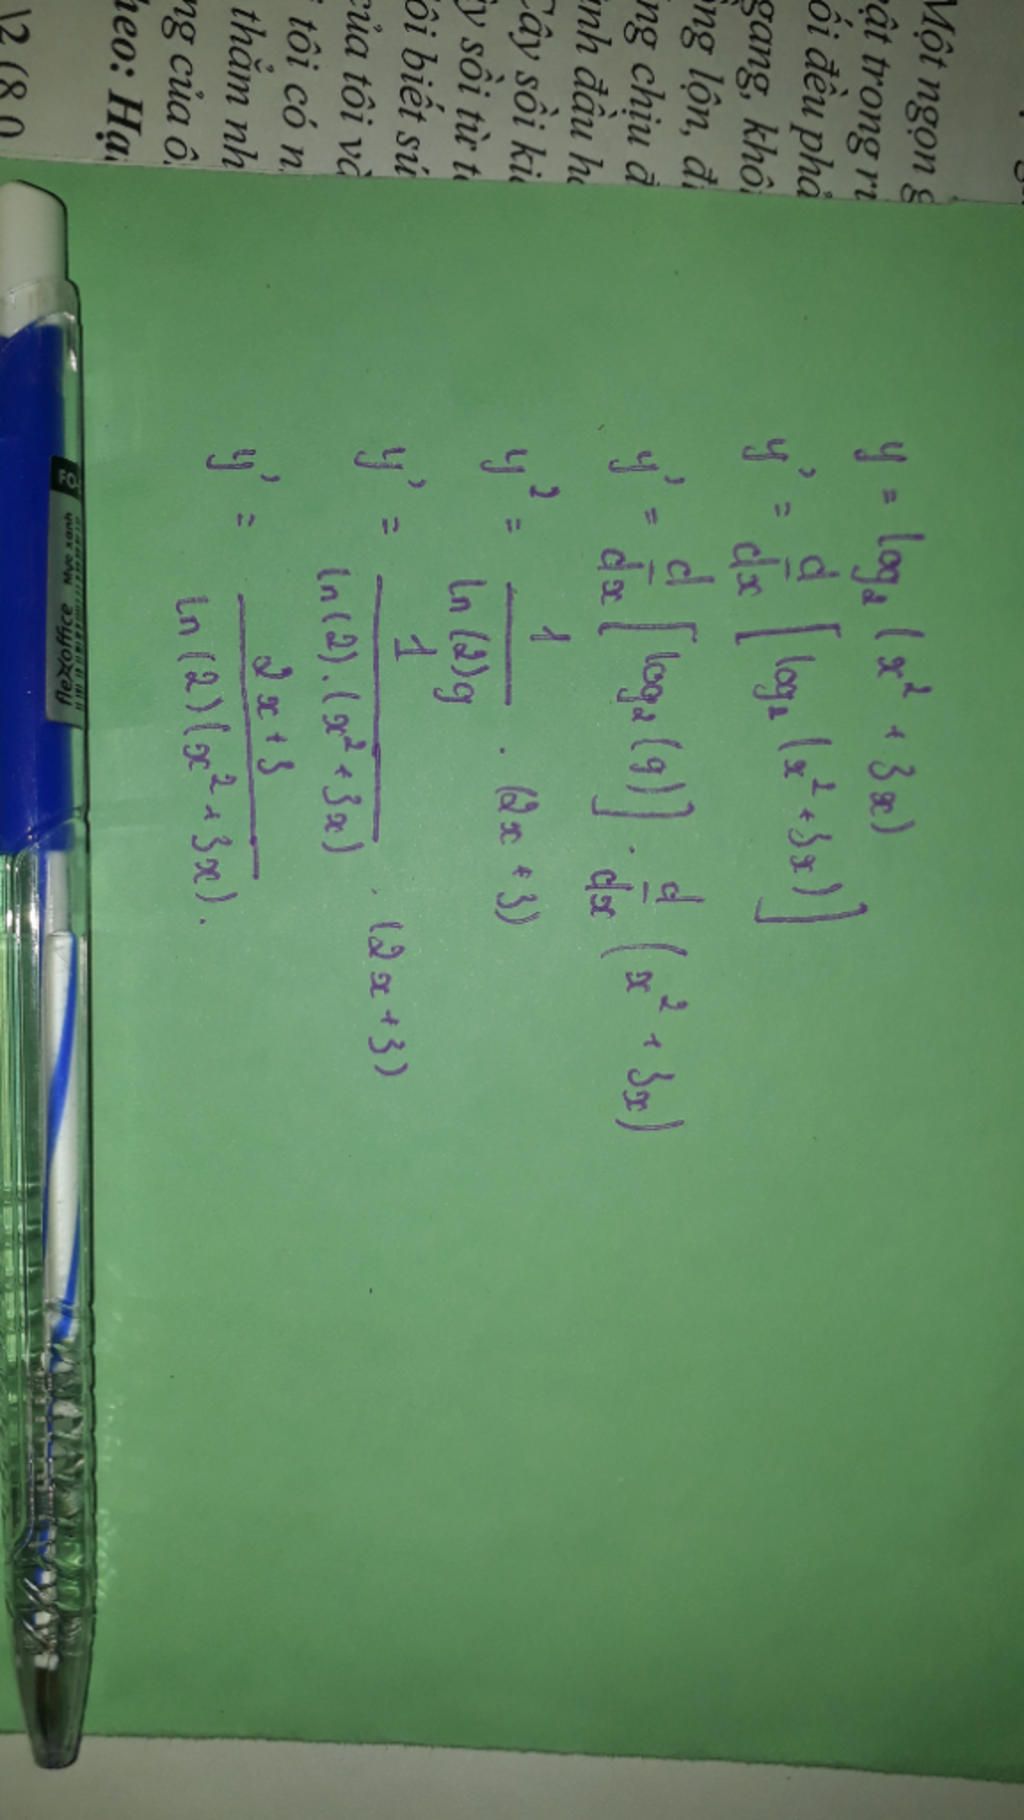 Một ngọn g
ật trong rù
ối đều phả
gang, khôn
ng lộn, đi
ng chịu đ
ình đầu h
Cây sồi ki
y sồi từ t
ôi biết sú
của tôi và
i tôi có n
thẳm nh
ng của ô
heo: Hạ
\2 (8 0
y = log₂ (x² + 3x)
y' = d/dx [log₂ (x² + 3x)]
y' = d/dx [log₂ (g)] . d/dx (x² + 3x)
y' = 1/(ln(2)g) . (2x + 3)
y' = 1/(ln(2).(x² + 3x)) . (2x + 3)
y' = (2x + 3)/(ln(2)(x² + 3x)).
FO
flexoffice Mực xanh